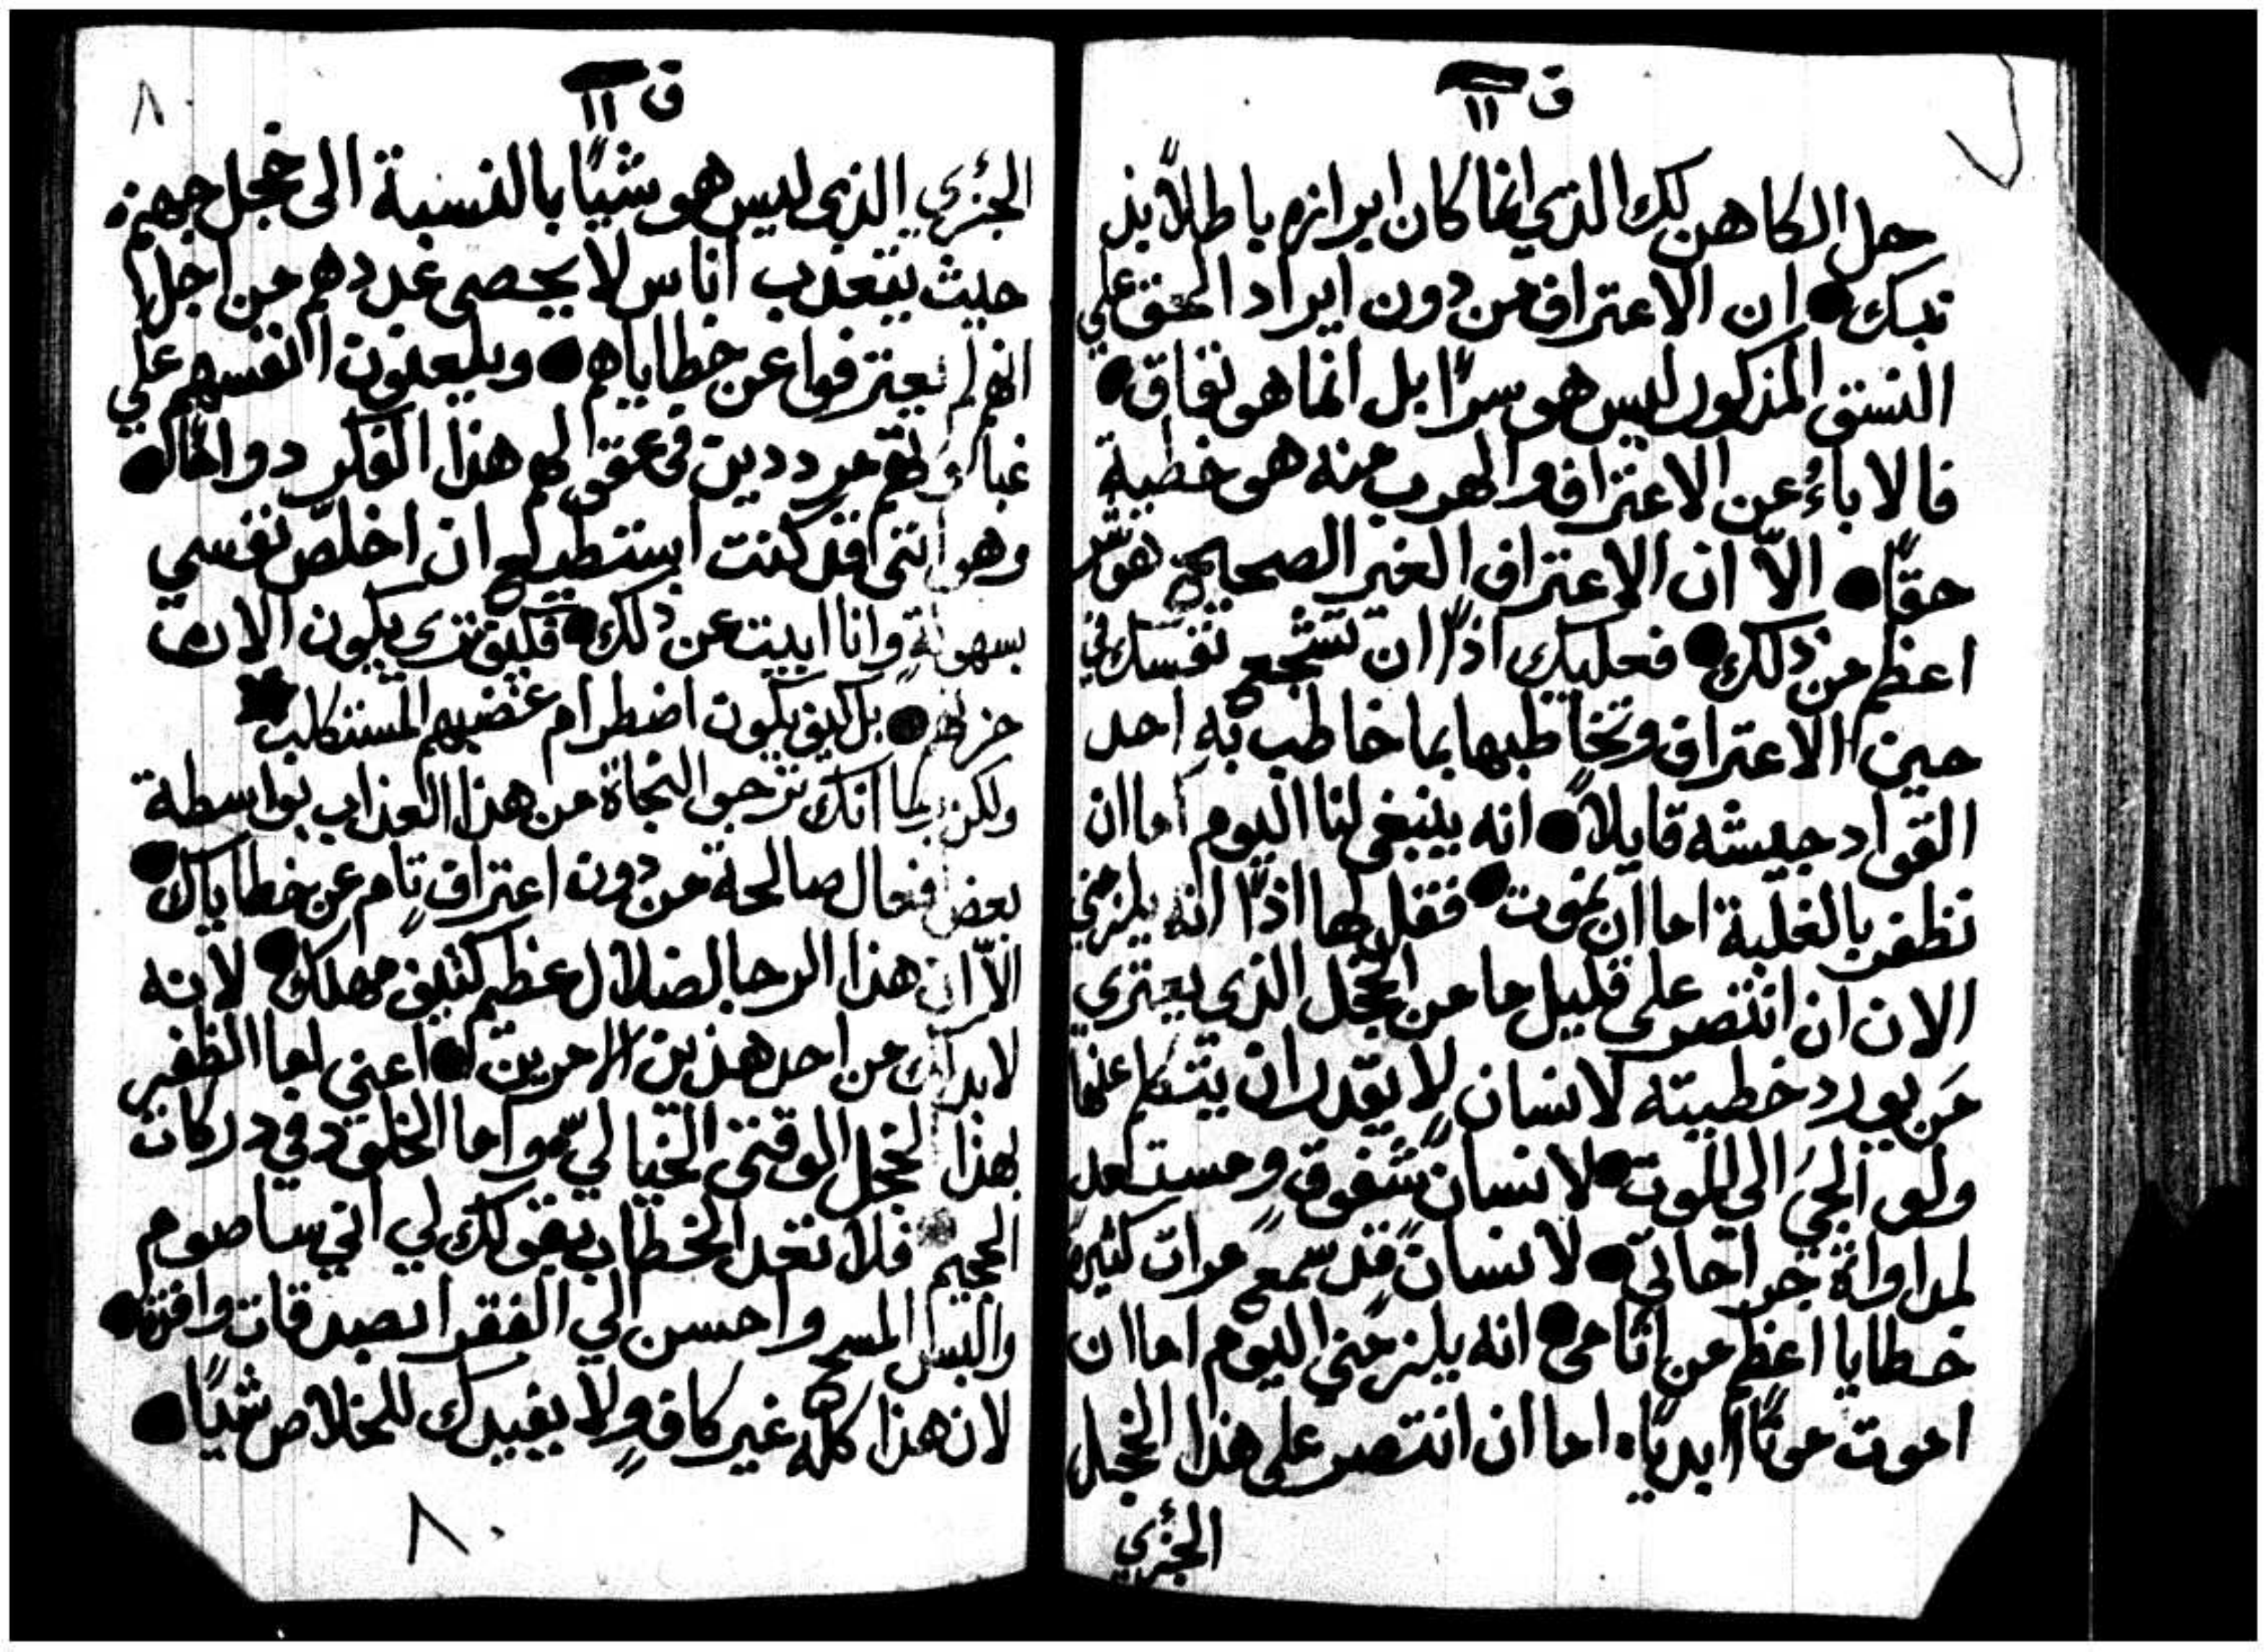 ق ١١
حل الكاهن لك الذي انما كان ابرازه باطلاً بذ
نبك ● ان الاعتراف من دون ايراد الحق علي
النسق المذكور ليس هو سرًا بل انما هو نفاق ●
فالاباءُ عن الاعتراف والهرب منه هو خطية
حقًا ● الاّ ان الاعتراف الغير الصحيح هو شر
اعظم من ذلك ● فعليك اذًا ان تشجع نفسك في
حين الاعتراف وتخاطبها بما خاطب به احد
القواد جيشه قايلاً ● انه ينبغي لنا اليوم اما ان
نظفر بالغلبة اما ان نموت ● فقل لها اذًا انه يلزمني
الان ان انتصر على قليل ما من الخجل الذي يعتري
مَن يورد خطيته لانسان لا يقدر ان يتكلم عنها
ولو الجيَ الى الموت ● لانسان شفوق ومستعد
لمداواة جراحاتي ● لانسان قد سمع مرات كثيرة
خطايا اعظم من اثامي ● انه يلزمني اليوم اما ان
اموت موتًا ابديًا ● اما ان انتصر على هذا الخجل
الجزئي
ق ١١
٨٠
الجزئي الذي ليس هو شيًا بالنسبة الى خجل جهنم
حيث يتعذب اناس لا يحصى عددهم من اجل
انهم لم يعترفوا عن خطاياهم ● ويلعنون انفسهم علي
غباوتهم مرددين في عقولهم هذا الفكر دوامًا ●
وهو انني قد كنت استطيع ان اخلّص نفسي
بسهولةٍ وانا ابيت عن ذلك ● فكيف ترى يكون الان
حزنهم ● بل كيف يكون اضطرام غضبهم المستكلب
ولكن ربما انك ترجو النجاة من هذا العذاب بواسطة
بعض فعال صالحة من دون اعتراف تام عن خطاياك ●
الاّ ان هذا الرجا لضلال عظيم كثيف مهلك ● لانه
لابد لك من احد هذين الامرين ● اعني اما الظفر
بهذا الخجل الوقتي الخيالي ● واما الخلود في دركات
الجحيم فلا تعد الخطاب بقولك لي اني ساصوم
والبس المسح واحسن الي الفقرا بصدقات وافرة ●
لان هذا كله غير كافٍ ولا يفيدك للخلاص شيًا ●
٨٠